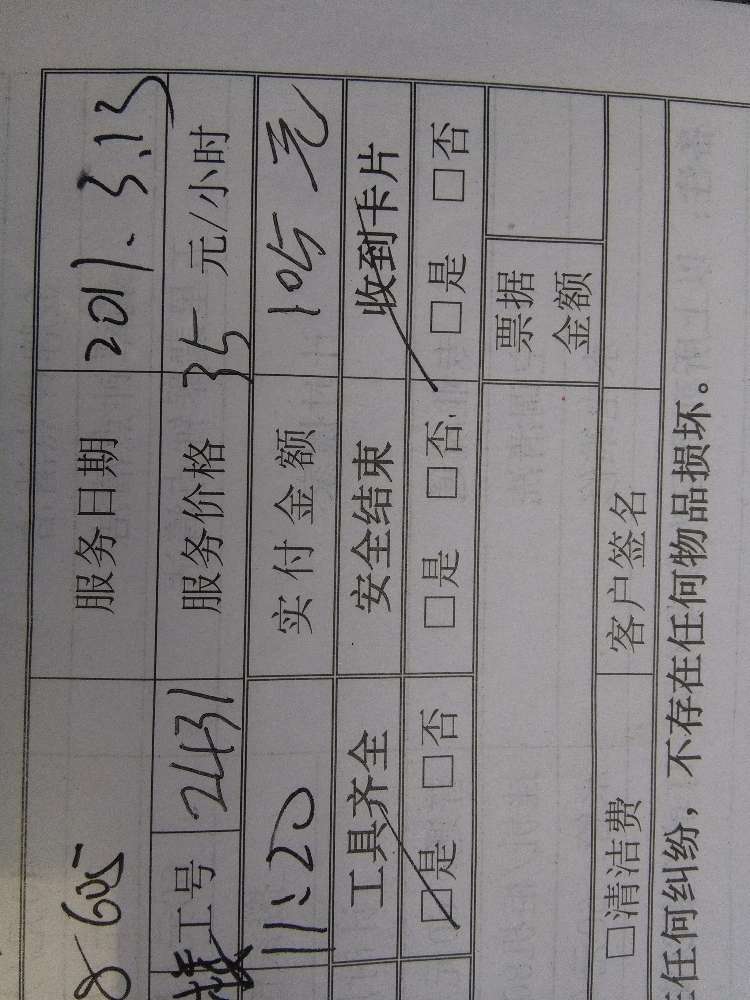 8605 服务日期 2017.3.13
工号 2431 服务价格 35 元/小时
11:20 实付金额 105元
工具齐全 安全结束 收到卡片
□是 □否 □是 □否 □是 □否
票据金额
□清洁费 客户签名
任何纠纷，不存在任何物品损坏。